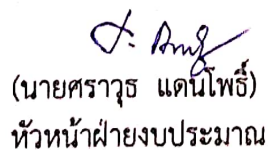 (นายศราวุธ แดนโพธิ์)
หัวหน้าฝ่ายงบประมาณ